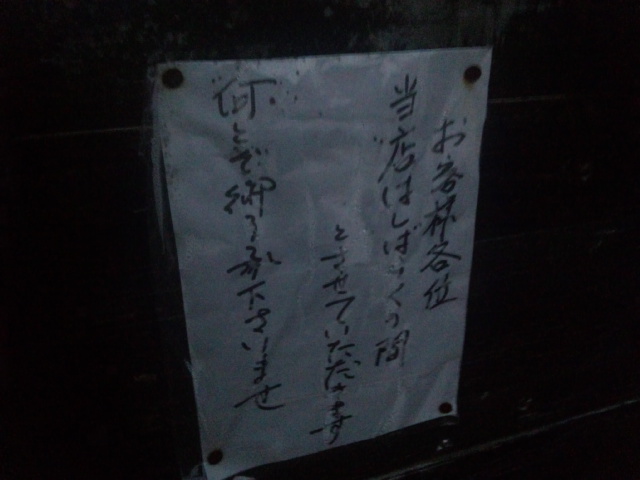 お客様各位
当店はしばらくの間
とさせていただきます
何とぞ御了承下さいませ